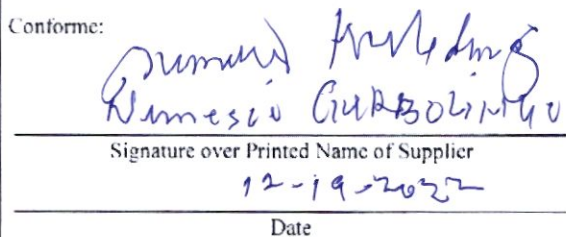 Conforme:
Nemesio
Signature over Printed Name of Supplier
12-19-2022
Date